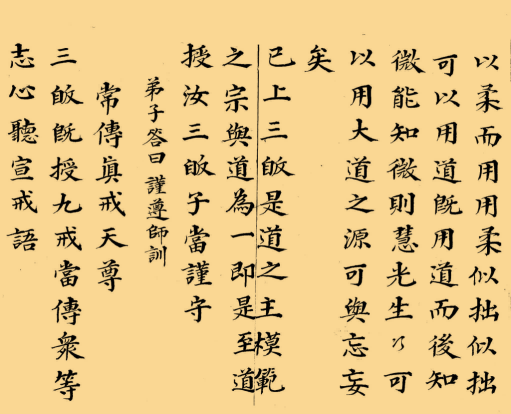 以柔而用用柔似拙似拙
可以用道既用道而後知
微能知微則慧光生乃可
以用大道之源可與忘妄
矣
已上三皈是道之主模範
之宗與道為一即是至道
授汝三皈子當謹守
弟子答曰謹遵師訓
常傳眞戒天尊
三皈旣授九戒當傳衆等
志心聽宣戒語